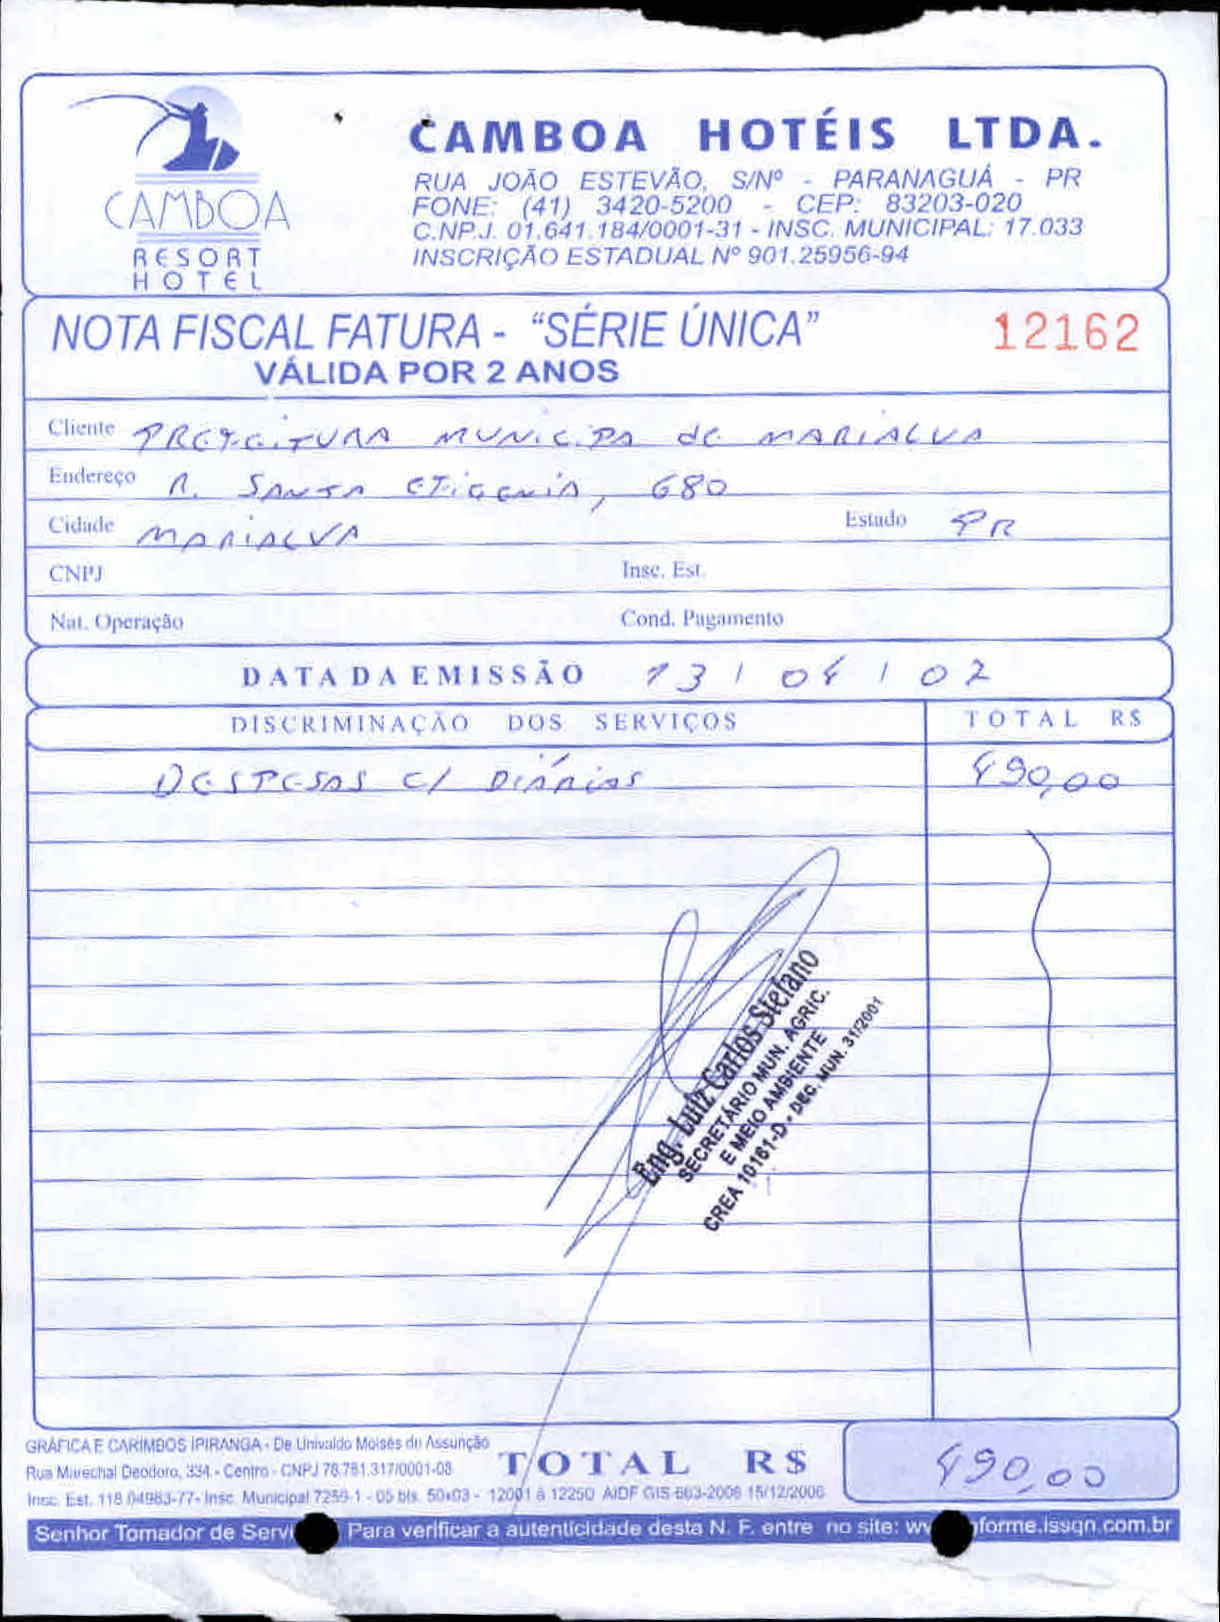 CAMBOA
RESORT
HOTEL
CAMBOA HOTÉIS LTDA.
RUA JOÃO ESTEVÃO, S/Nº - PARANAGUÁ - PR
FONE: (41) 3420-5200 - CEP: 83203-020
C.NP.J. 01.641.184/0001-31 - INSC. MUNICIPAL: 17.033
INSCRIÇÃO ESTADUAL Nº 901.25956-94
NOTA FISCAL FATURA - "SÉRIE ÚNICA" 12162
VÁLIDA POR 2 ANOS
Cliente PREFEITURA MUNICIPA de MARIALVA
Endereço R. SANTA EFIGENIA, 680
Cidade MARIALVA Estado PR
CNPJ Insc. Est.
Nat. Operação Cond. Pagamento
DATA DA EMISSÃO 13 / 04 / 07
DISCRIMINAÇÃO DOS SERVIÇOS TOTAL R$
DESPESAS C/ DIÁRIAS 490,00
Eng. Luiz Carlos Stefano
SECRETÁRIO MUN. AGRIC.
E MEIO AMBIENTE
CREA 10161-D - DEC. MUN. 31/2001
GRÁFICA E CARIMBOS IPIRANGA - De Univaldo Moisés da Assunção
Rua Marechal Deodoro, 334 - Centro - CNPJ 78.781.317/0001-08
Insc. Est. 118.04983-77 - Insc. Municipal 7259-1 - 05 bls. 50x03 - 12001 à 12250 AIDF GIS 663-2006 15/12/2006
TOTAL R$ 490,00
Senhor Tomador de Servi Para verificar a autenticidade desta N. F. entre no site: ww forme.issqn.com.br